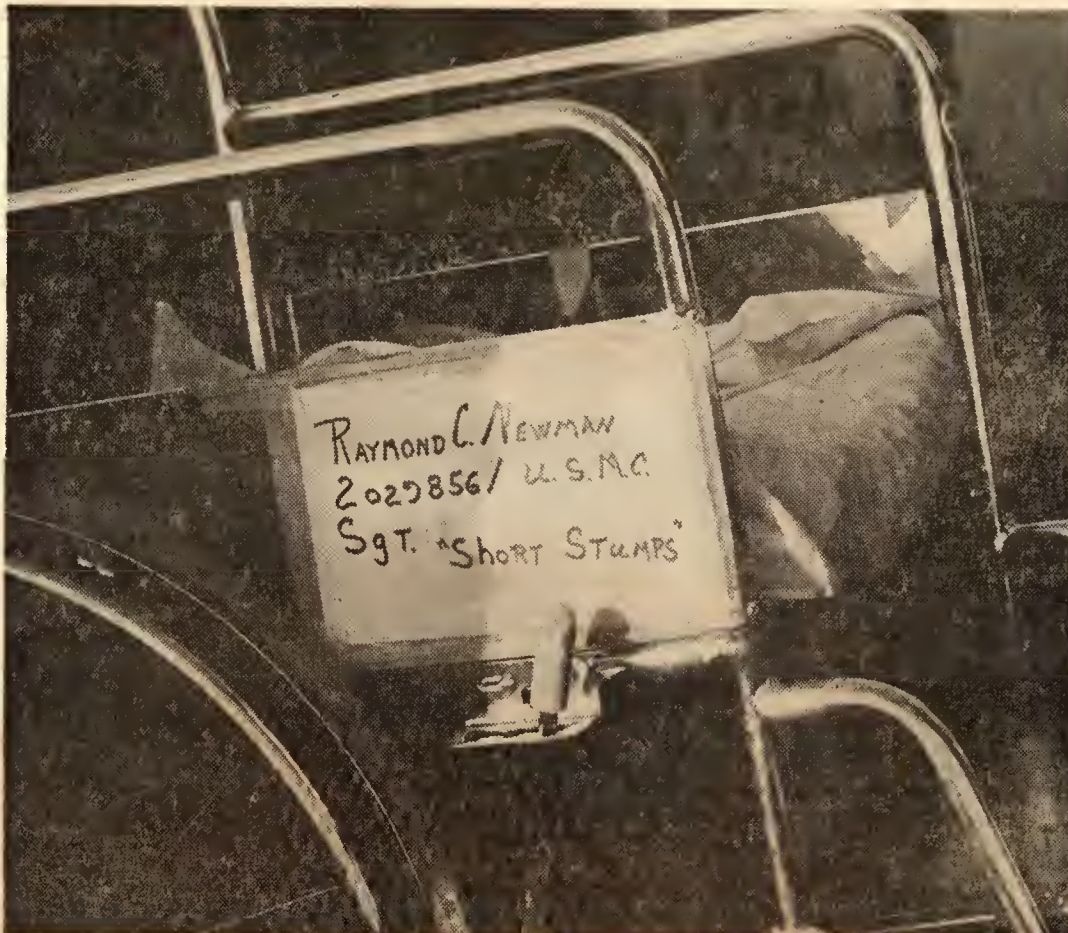 RAYMOND C. NEWMAN
2029856/ U.S.M.C.
SgT. "SHORT STUMPS"